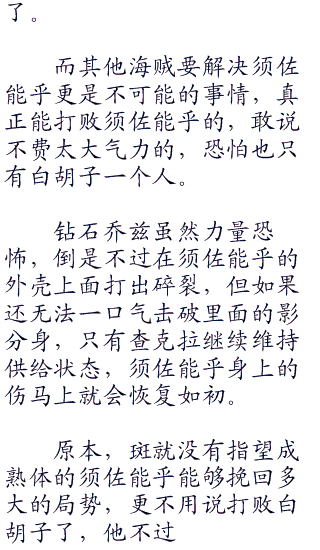 了。
而其他海贼要解决须佐
能乎更是不可能的事情，真
正能打败须佐能乎的，敢说
不费太大气力的，恐怕也只
有白胡子一个人。
钻石乔兹虽然力量恐
怖，倒是不过在须佐能乎的
外壳上面打出碎裂，但如果
还无法一口气击破里面的影
分身，只有查克拉继续维持
供给状态，须佐能乎身上的
伤马上就会恢复如初。
原本，斑就没有指望成
熟体的须佐能乎能够挽回多
大的局势，更不用说打败白
胡子了，他不过